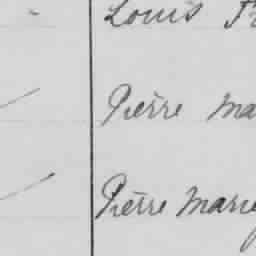 Louis
Pierre Ma
Pierre Marie